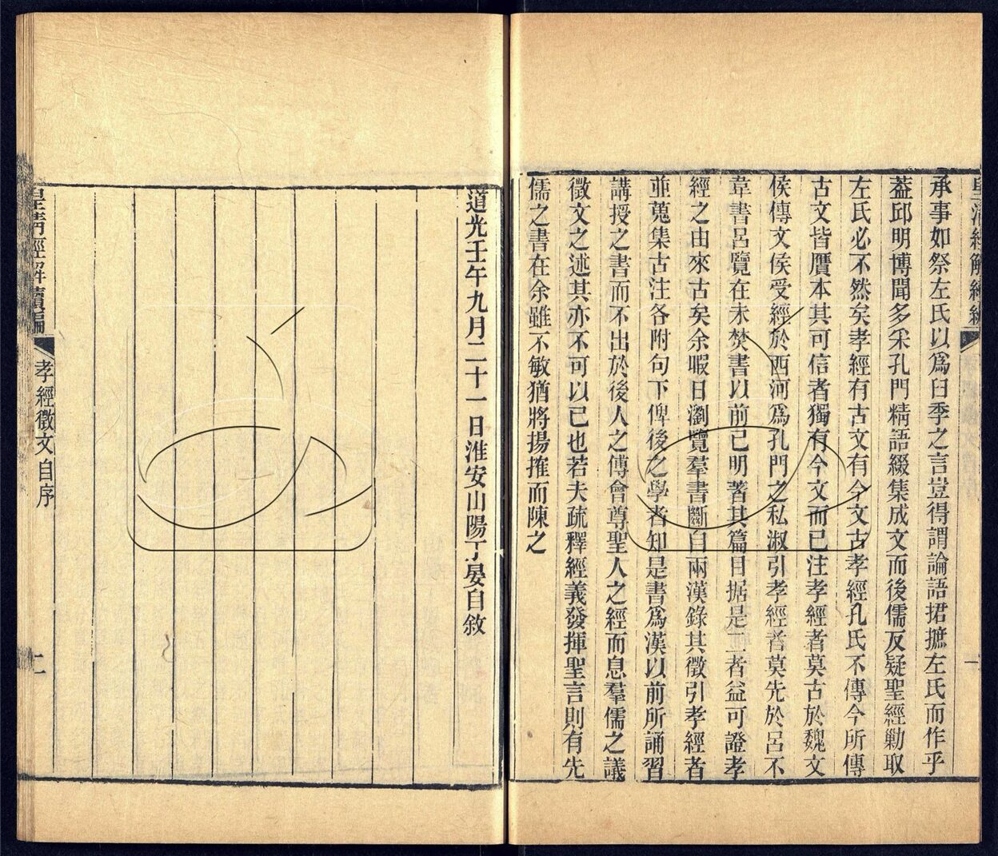 皇清經解續編
一
承事如祭左氏以爲臼季之言豈得謂論語捃摭左氏而作乎
葢邱明博聞多采孔門精語綴集成文而後儒反疑聖經勦取
左氏必不然矣孝經有古文有今文古孝經孔氏不傳今所傳
古文皆贋本其可信者獨有今文而已注孝經者莫古於魏文
侯傳文侯受經於西河爲孔門之私淑引孝經者莫先於呂不
韋書呂覽在未焚書以前已明著其篇目据是二者益可證孝
經之由來古矣余暇日瀏覽羣書斷自兩漢錄其徵引孝經者
並蒐集古注各附句下俾後之學者知是書爲漢以前所誦習
講授之書而不出於後人之傅會尊聖人之經而息羣儒之議
徵文之述其亦不可以已也若夫疏釋經義發揮聖言則有先
儒之書在余雖不敏猶將揚搉而陳之
道光壬午九月二十一日淮安山陽丁晏自敘
皇淸經解續編
孝經徵文自序
二